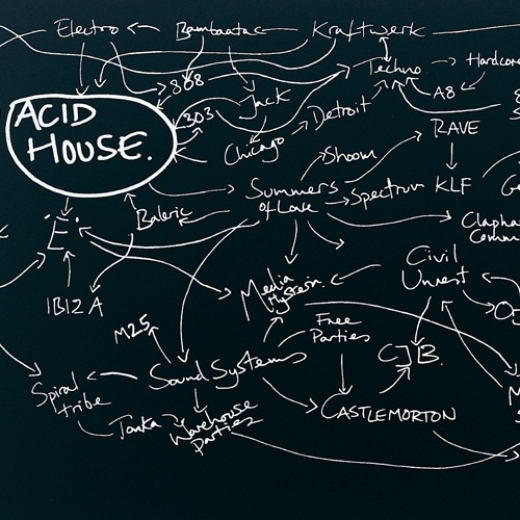 Electro
Bambaataa
Kraftwerk
Techno
Hardcore
808
Jack
A8
ACID
HOUSE.
303
Detroit
RAVE
Chicago
Shoom
Summers
of Love
Spectrum
KLF
Baleric
'E'
Civil
Unrest
Media
IBIZA
M25
Free
Parties
CJB.
Sound Systems
Spiral
tribe
CASTLEMORTON
Tonka
Warehouse
Parties